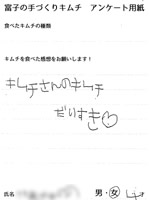 富子の手づくりキムチ アンケート用紙
食べたキムチの種類
キムチを食べた感想をお願いします!
キムチさんのキムチ
だいすき♡
氏名
男・女 才